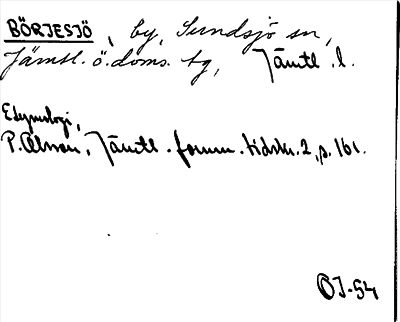 BÖRJESJÖ, by, Sundsjö sn,
Jämtl. ö. doms. tg, Jämtl. l.
Etymologi,
P. Olsson, Jämtl. fornm. tidskr. 2, s. 161.
OJ-54